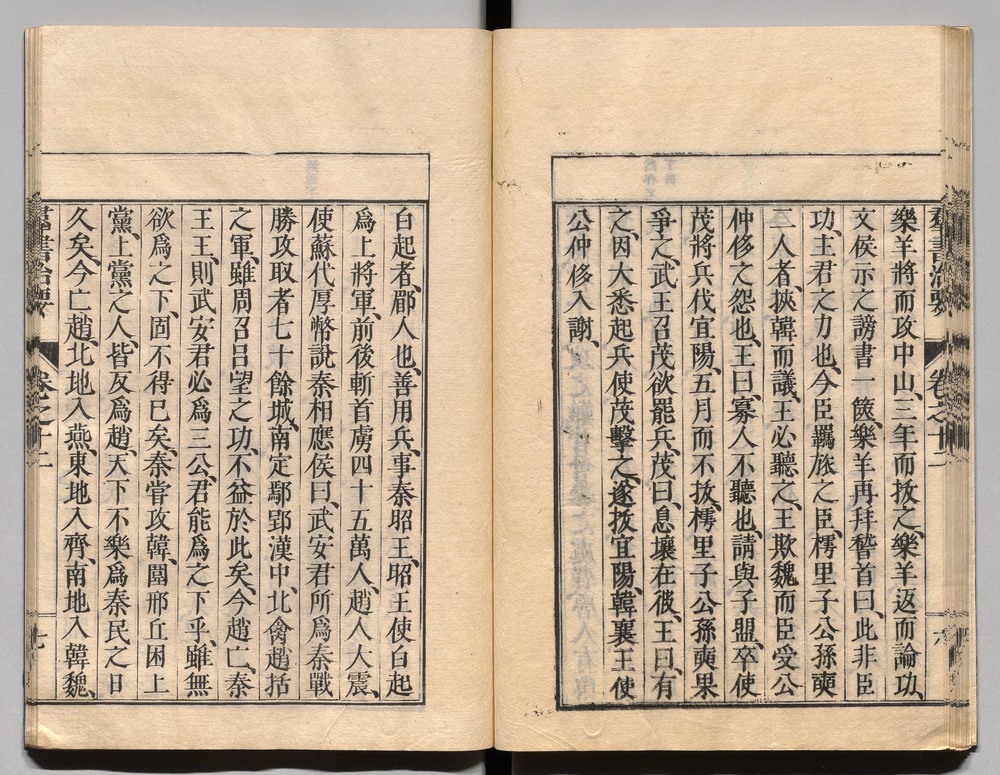 樂羊將而攻中山、三年而拔之、樂羊返而論功、
文侯示之謗書一篋、樂羊再拜䭫首曰、此非臣
功、主君之力也、今臣羈旅之臣、樗里子公孫奭
二人者、挾韓而議、王必聽之、王欺魏而臣受公
仲侈之怨也、王曰、寡人不聽也、請與子盟、卒使
茂將兵伐宜陽、五月而不拔、樗里子公孫奭果
爭之、武王召茂欲罷兵、茂曰、息壤在彼、王曰、有
之、因大悉起兵使茂擊之、遂拔宜陽、韓襄王使
公仲侈入謝、
白起者、郿人也、善用兵、事秦昭王、昭王使白起
爲上將軍、前後斬首虜四十五萬人、趙人大震、
使蘇代厚幣說秦相應侯曰、武安君所爲秦戰
勝攻取者七十餘城、南定鄢郢漢中、北禽趙括
之軍、雖周召呂望之功、不益於此矣、今趙亡、秦
王王、則武安君必爲三公、君能爲之下乎、雖無
欲爲之下、固不得已矣、秦甞攻韓、圍邢丘困上
黨、上黨之人、皆反爲趙、天下不樂爲秦民之日
久矣、今亡趙、北地入燕、東地入齊、南地入韓魏、
羣書治要
卷之十二
七